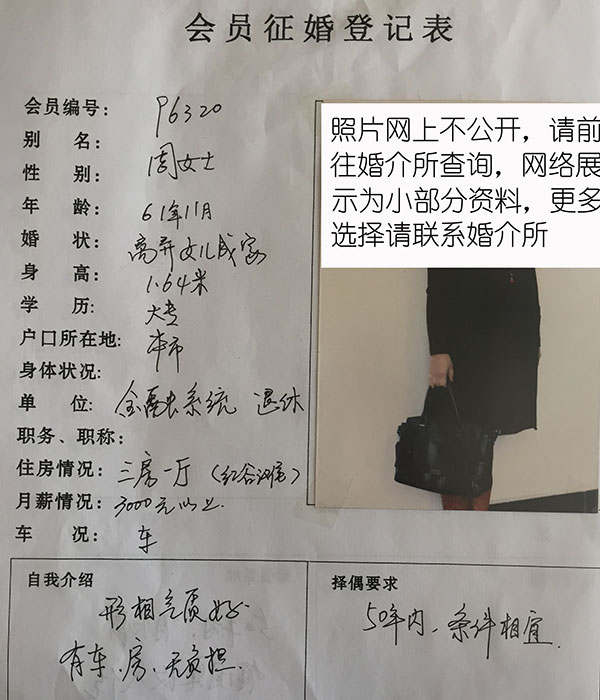 会员征婚登记表
会员编号： P6320
别 名： 周女士
性 别：
年 龄： 61年11月
婚 状： 离异女儿成家
身 高： 1.64米
学 历： 大专
户口所在地： 本市
身体状况：
单 位： 金融系统 退休
职务、职称：
住房情况： 三房一厅（红谷滩）
月薪情况： 3000元以上
车 况： 车
照片网上不公开，请前
往婚介所查询，网络展
示为小部分资料，更多
选择请联系婚介所
自我介绍
形相气质好
有车、房、无负担.
择偶要求
50年内、条件相宜